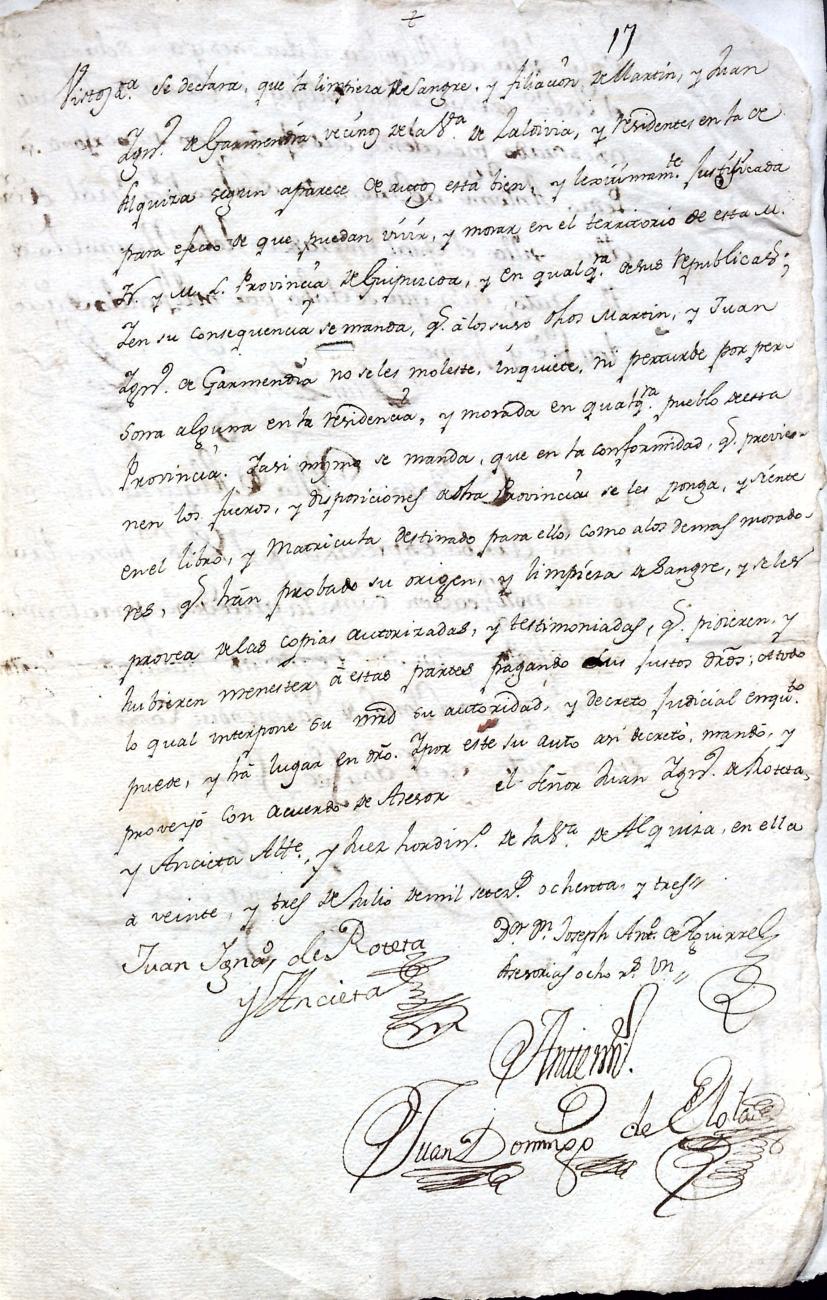 +
17
Vistos &a. Se declara, que la limpieza de Sangre, y filiación de Martin, y Juan
Ign.º de Garmendia vecinos de la V.a de Zaldivia, y residentes en la de
Alquiza segun aparece de autos está bien, y lexitimam.te justificada
para efecto de que puedan vivir, y morar en el territorio de esta M.
N. y M. L. Provincia de Guipuzcoa, y en qualq.ra de sus republicas;
Y en su consequencia se manda, q.e à los suso dhos Martin, y Juan
Ign.º de Garmendia no se les moleste, inquiete, ni perturbe por per-
sona alguna en la residencia, y morada en qualq.ra pueblo de esta
Provincia. Y asi mismo se manda, que en la conformidad, q.e previe-
nen los fueros, y disposiciones de dha Provincia se les ponga, y siente
en el libro, y Matricula destinado para ello, como a los demas morado-
res, q.e hán probado su origen, y limpieza de Sangre, y se les
provea de las copias autorizadas, y testimoniadas, q.e pidieren, y
hubieren menester à estas partes pagando sus justos dros; a todo
lo qual interpone su mrd su autoridad, y decreto judicial en q.to
puede, y há lugar en dro. Y por este su auto asi decretó, mandó, y
proveyó con acuerdo de Asesor el Señor Juan Ign.º de Roteta,
y Ancieta Alc.e, y Juez hordin.º de la V.a de Alquiza, en ella
a veinte, y tres de Julio de mil setez.s ochenta, y tres
Juan Ignaº de Roteta
y Ancieta
D.or D.n Joseph Ant.º de Aguirre
Asesorias ocho r.s Vn
Ante mi
Juan Domingo de Elola